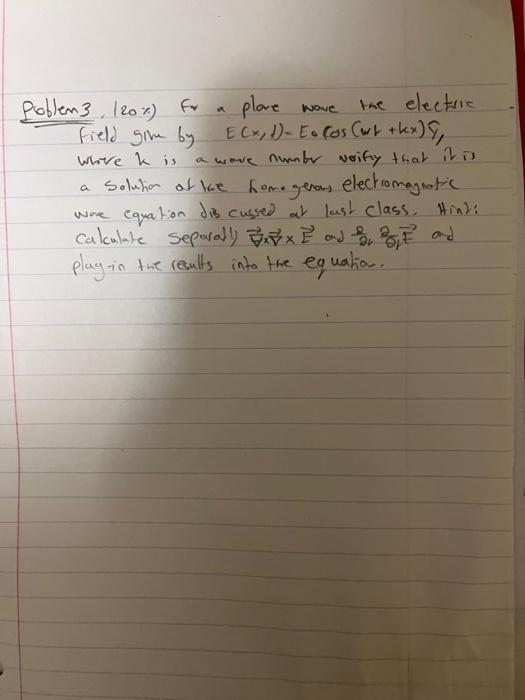 Problem 3, (20%) For a plane wave the electric
field given by E(x,t)= E₀ Cos(wt +kx) ŷ,
where k is a wave number verify that it is
a solution of the homogenous electromagnetic
wave equation discussed at last class. Hint:
Calculate separatly ∇⃗x∇⃗x E⃗ and ∂/∂t ∂/∂t E⃗ and
plug-in the results into the equation.